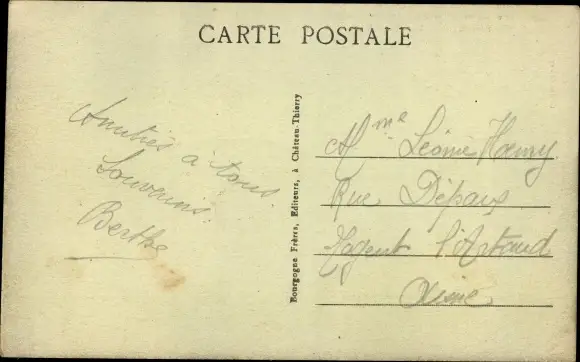 CARTE POSTALE
Amitiés à tous.
Souvenirs.
Berthe
Bourgogne Frères, Editeurs, à Château-Thierry
Mme Léonie Henry
Rue Dépaux
Nogent l'Artaud
Aisne